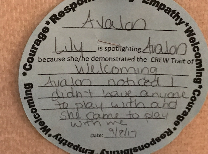 Courage • Responsibility • Empathy • Welcoming
Avalon
Lily is spotlighting Avalon
because she/he demonstrated the CREW Trait of
Welcoming
Avalon noticed I
didn't have anyone
to play with and
she came to play
with me
Date: 9/8/17